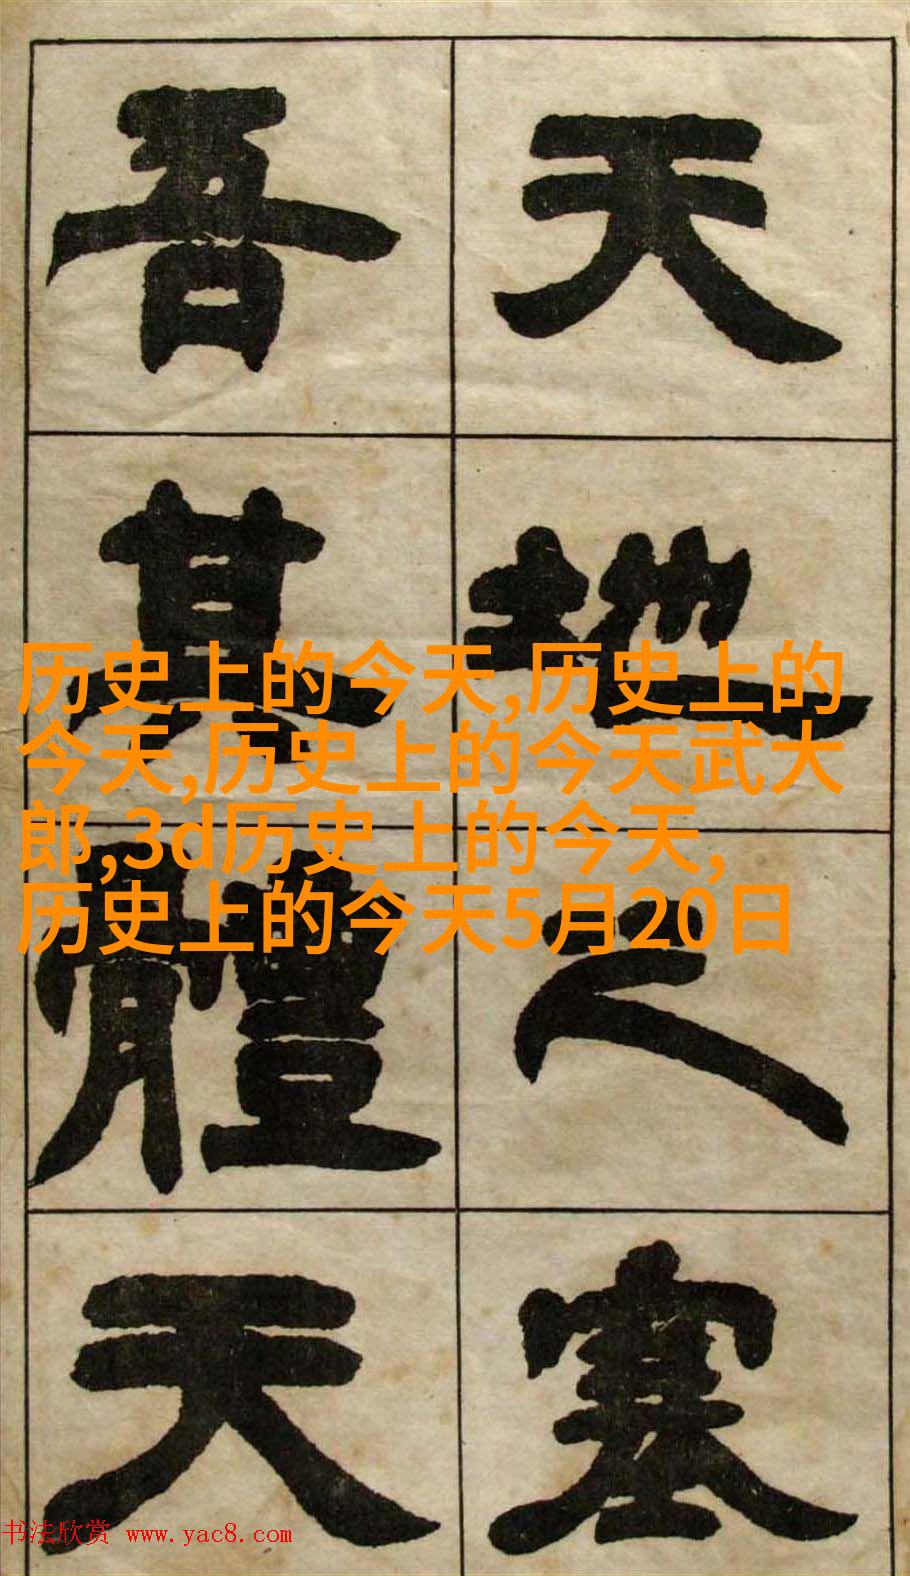 天地之塞
吾其體天
历史上的今天,历史上的
今天,历史上的今天武大
郎,3d历史上的今天,
历史上的今天5月20日
书法欣赏 www.yac8.com